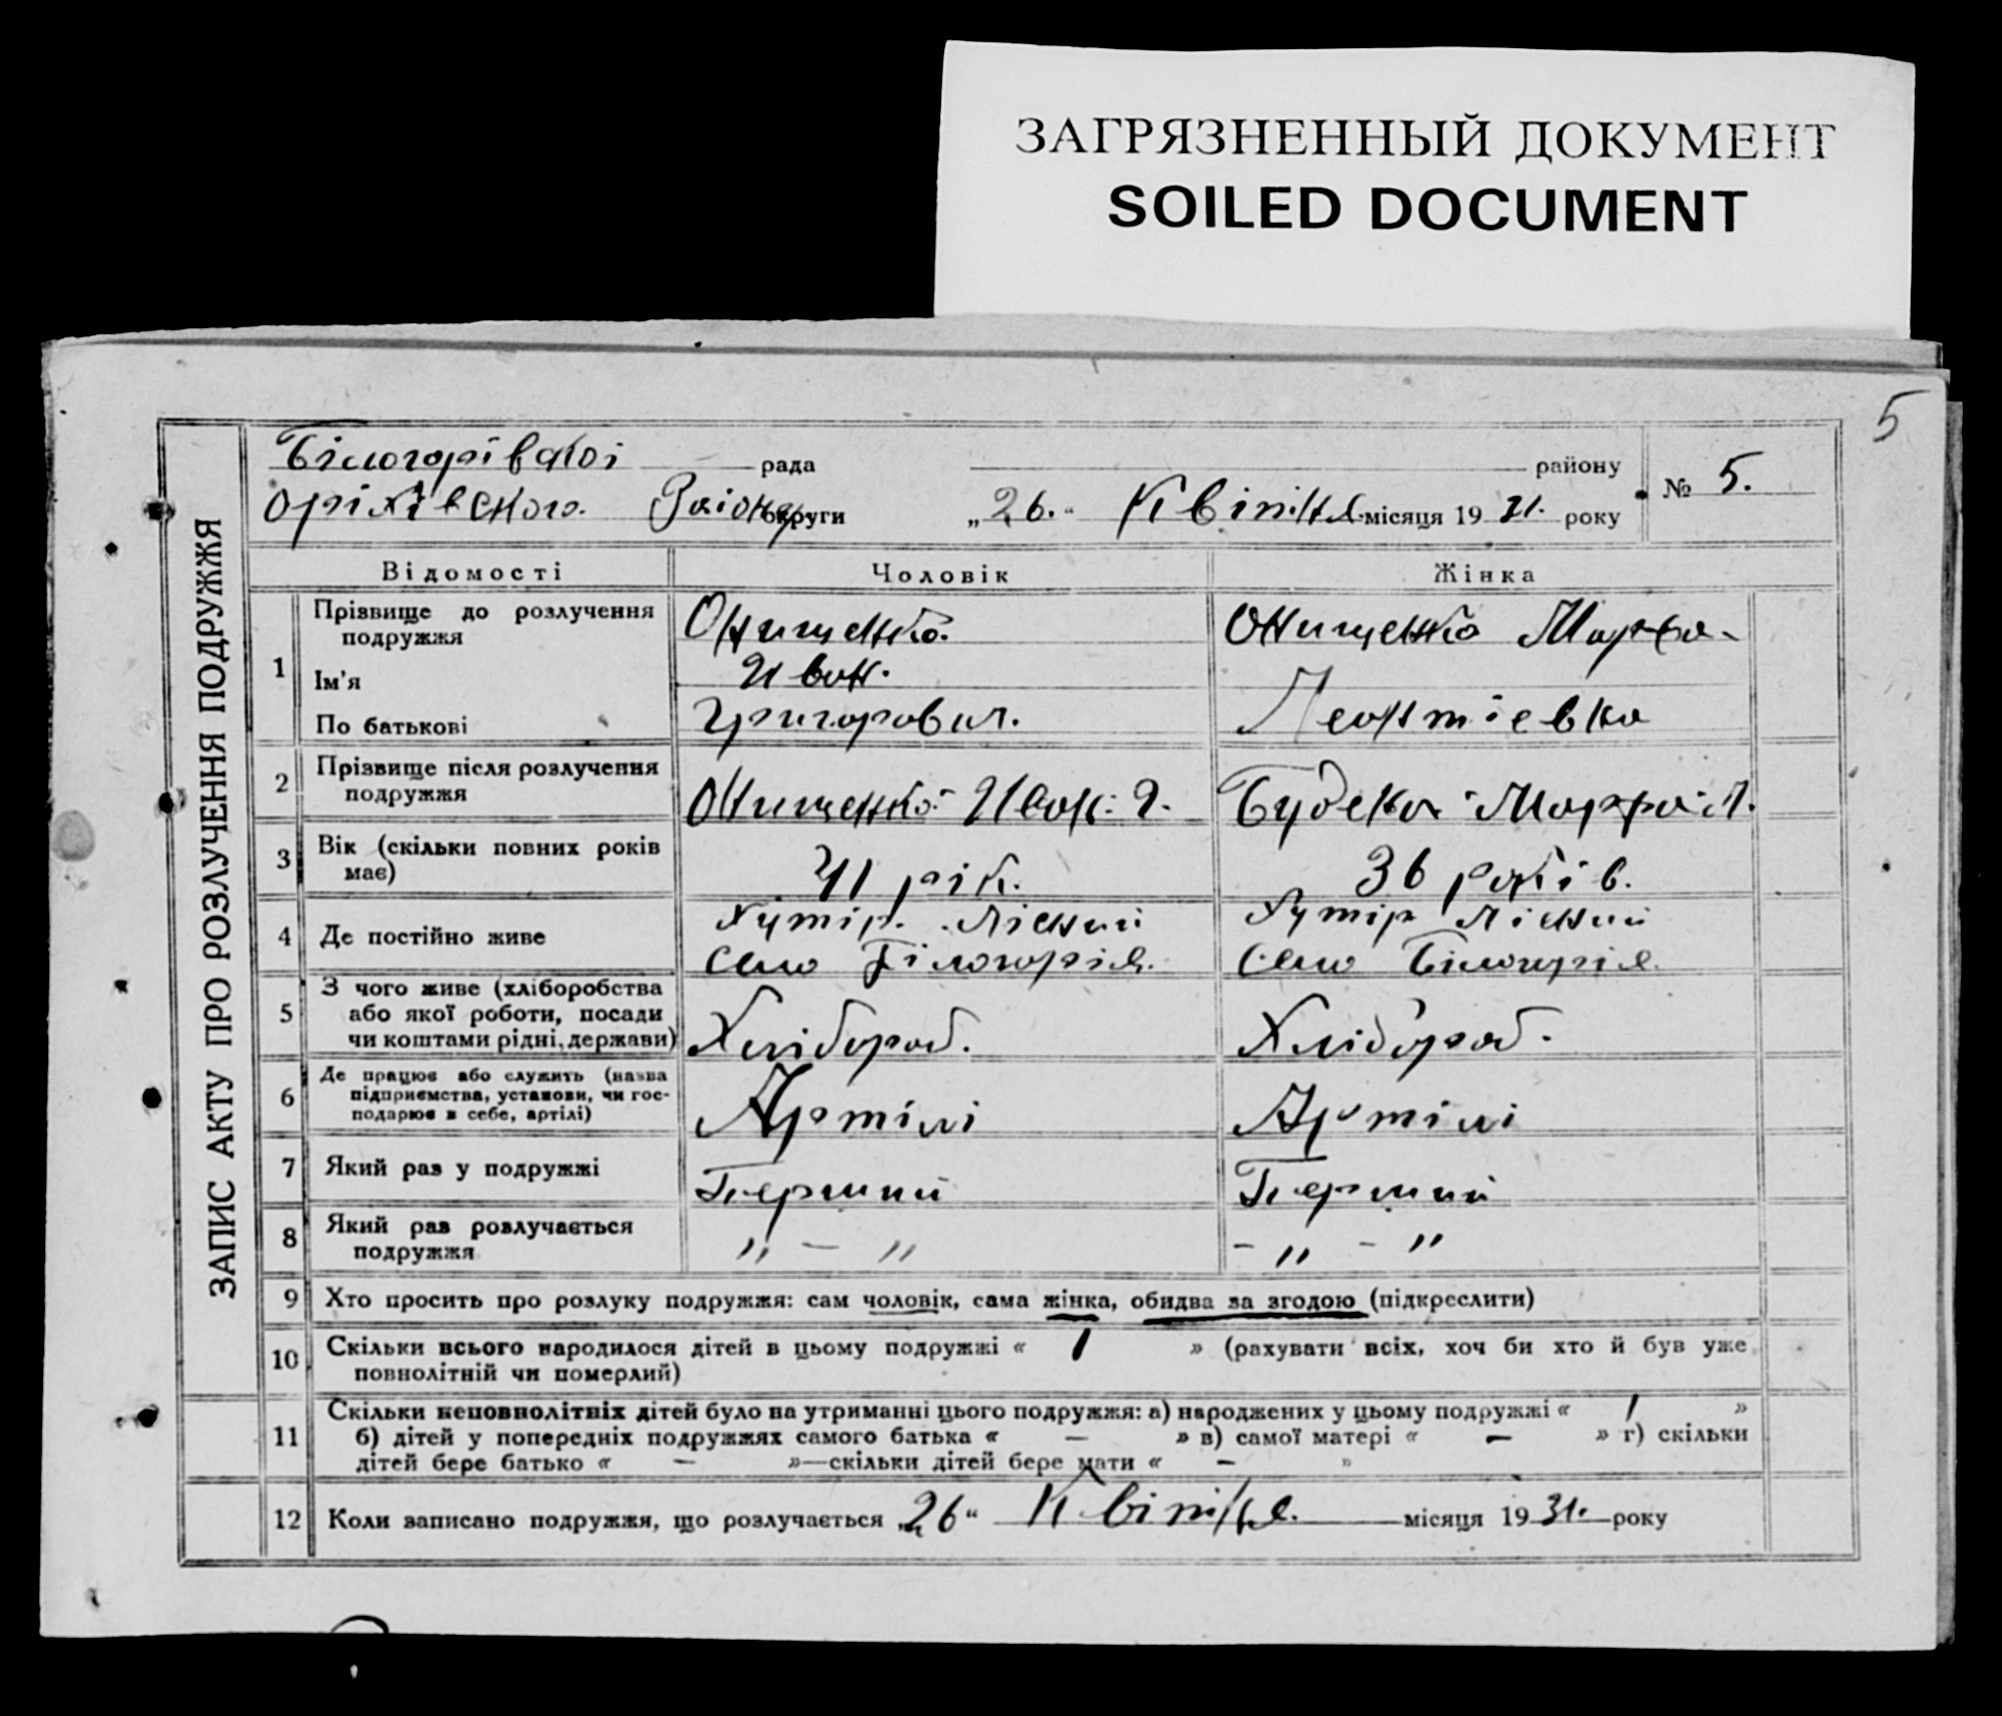 ЗАГРЯЗНЕННЫЙ ДОКУМЕНТ
SOILED DOCUMENT
5
ЗАПИС АКТУ ПРО РОЗЛУЧЕННЯ ПОДРУЖЖЯ
Білогорівської рада району
Оріхівського Району округи „26.“ Квітня місяця 1931. року
№ 5.
Відомості Чоловік Жінка
1 Прізвище до розлучення подружжя Онищенко. Онищенко Марфа
Ім'я Иван.
По батькові Григорович. Леонтієвна
2 Прізвище після розлучення подружжя Онищенко Иван. Г. Марфа Л.
3 Вік (скільки повних років має) 41 рік. 36 років.
4 Де постійно живе Хутір Лісний Хутір Лісний
Село Білогорія. Село Білогорія.
5 З чого живе (хліборобства
або якої роботи, посади
чи коштами рідні, держави) Хлібороб. Хлібороб.
6 Де працює або служить (назва
підприємства, установи, чи гос-
подарює в себе, артілі) Артілі Артілі
7 Який раз у подружжі Перший Перший
8 Який раз розлучається подружжя " — " - " - "
9 Хто просить про розлуку подружжя: сам чоловік, сама жінка, обидва за згодою (підкреслити)
10 Скільки всього народилося дітей в цьому подружжі « 1 » (рахувати всіх, хоч би хто й був уже
повнолітній чи померлий)
11 Скільки неповнолітніх дітей було на утриманні цього подружжя: а) народжених у цьому подружжі « 1 »
б) дітей у попередніх подружжях самого батька « — » в) самої матері « — » г) скільки
дітей бере батько « — »—скільки дітей бере мати « — »
12 Коли записано подружжя, що розлучається „26“ Квітня. місяця 1931. року